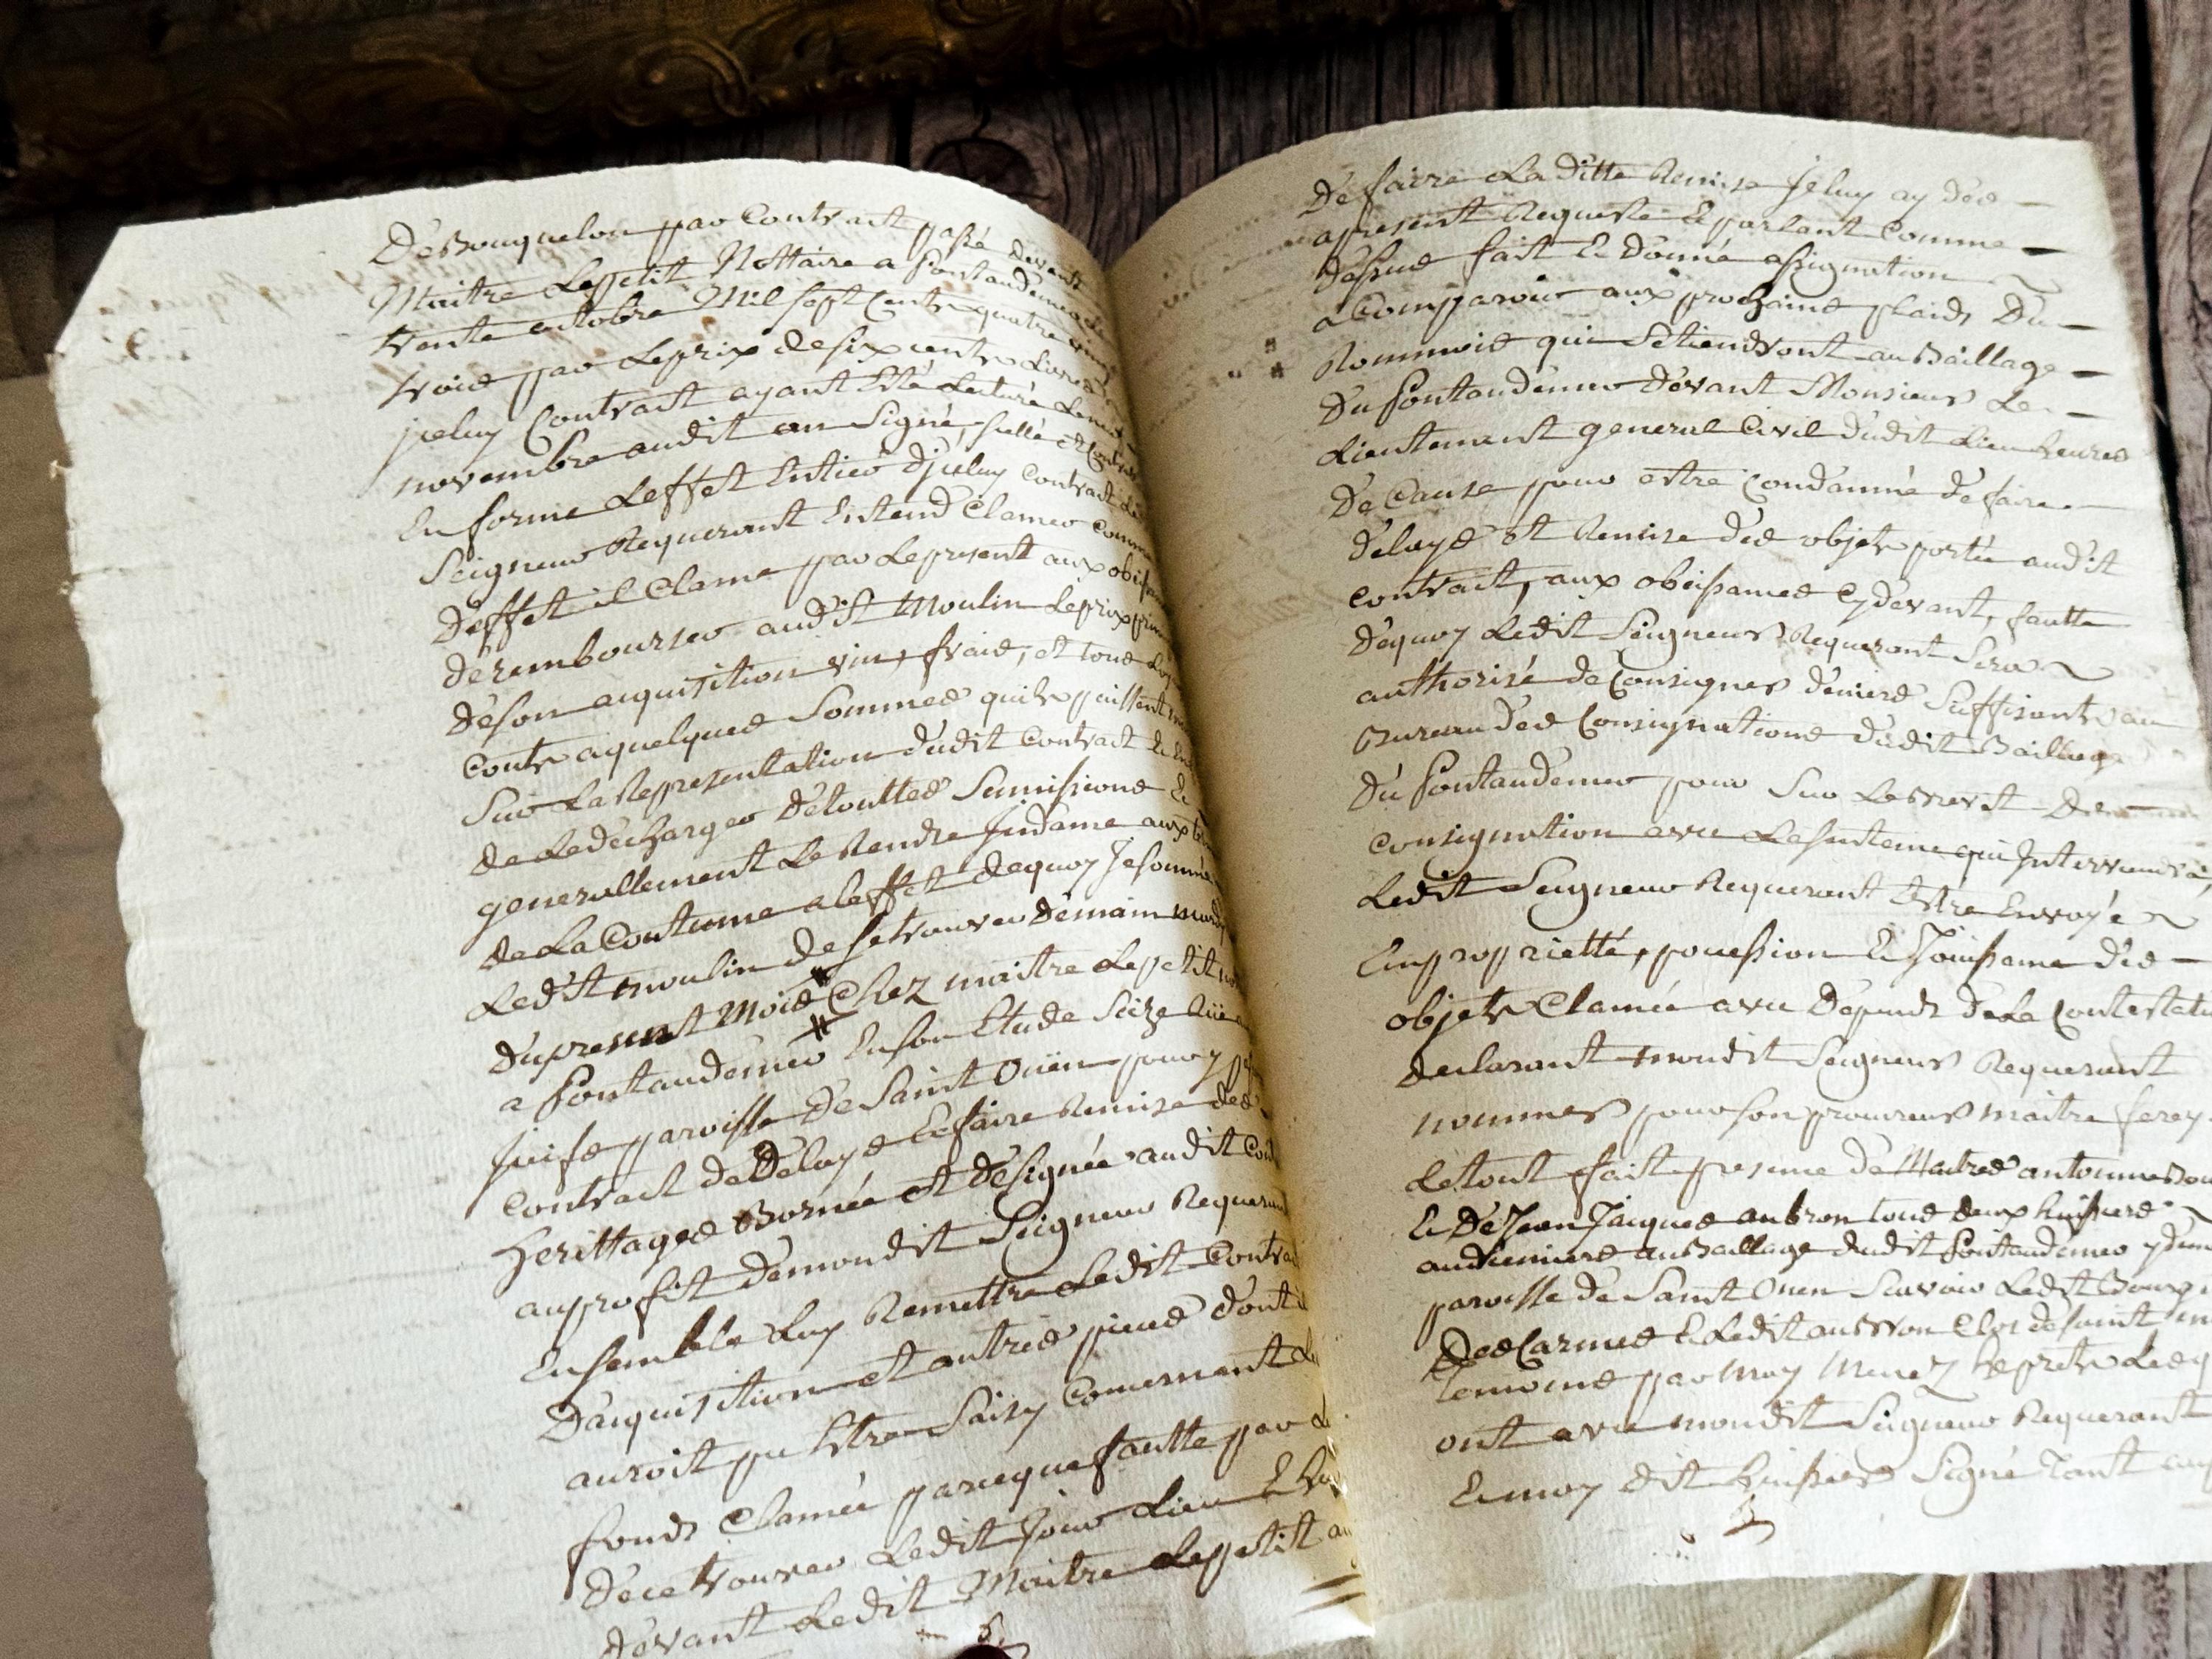 De Bouquelon par Contract passé devant
Maitre Lepetit Nottaire a Pontaudemer le
trente octobre Mil sept Cents quatre vingt
trois par Le prix de six cents Livres
jceluy Contract ayant Eté Lecturé Le neuf
novembre audit an Signé, sellé et Controllé
En forme Leffet Entier djceluy contract ledit
Seigneur Requerant Entend Clamer comme
Deffet il Clame par Lepresent aux obeissances
de rembourser audit Moulin Le prix principal
de son acquisition vin, frais, et tous Loyaux
Couts a quelques Sommes quils puissent monter
Sur La Representation dudit Contract Et
de Le decharger de touttes Sumissions Et
generallement Le Rendre Jndame aux termes
de La Coutume a leffet de quoy Je sommé
Ledit moulin de se trouver demain mardy
du present mois Chez maitre Lepetit
a Pontaudemer En son Etude Size Rüe
Juifs parroisse de Saint Oüen pour y
contract de Delays Et faire Remise des
herittages Bornés et designés audit Contract
au profit de mondit Seigneur Requerant
Ensemble Luy Remettre Ledit Contract
Dacquisition et autres pieces dont il
auroit pu Etre Saisy Concernant Les
fonds Clamés parceque fautte par Luy
de ce trouver Ledit Jour Lieu Et heure
devant Ledit Maitre Lepetit
De faire La ditte Remise Jeluy ay des
apresent Requeste Et parlant Comme
dessus fait Et donné assignation
a Comparoir aux prochains plaids Du
Rommois qui Setiendront au Baillage
Du Pontaudemer devant Monsieur Le
Lieutenant general Civil dudit Lieu heures
De Cause pour estre Condamné de faire
delays et Remise des objets portés audit
contract, aux obeissances Cy devant, fautte
de quoy Ledit Seigneur Requerant Sera
authorisé de Consigner deniers Suffisants au
Bureau des Consignations dudit Baillage
Du Pontaudemer pour Sur Le Brevet De
consignation avec La sentence qui Jnterviendra,
Ledit Seigneur Requerant Estre Envoyé
En proprietté, pocession Et Jouissance des
objets Clamés avec Depends de La Contestation
declarant mondit Seigneur Requerant
nommer pour son procureur maitre ferey
Le tout fait presence de Maitres antoinne
Et De Jean Jacques aubron tous deux huissiers
audienciers au Baillage dudit Pontaudemer y dem
paroisse de Saint Ouen Scavoir Ledit Bourg
Des Carmes Et Ledit aubron Clos de saint
temoins par moy Menez Exprets Lesq
ont avec mondit Seigneur Requerant
Et moy dit huissier Signé Tant